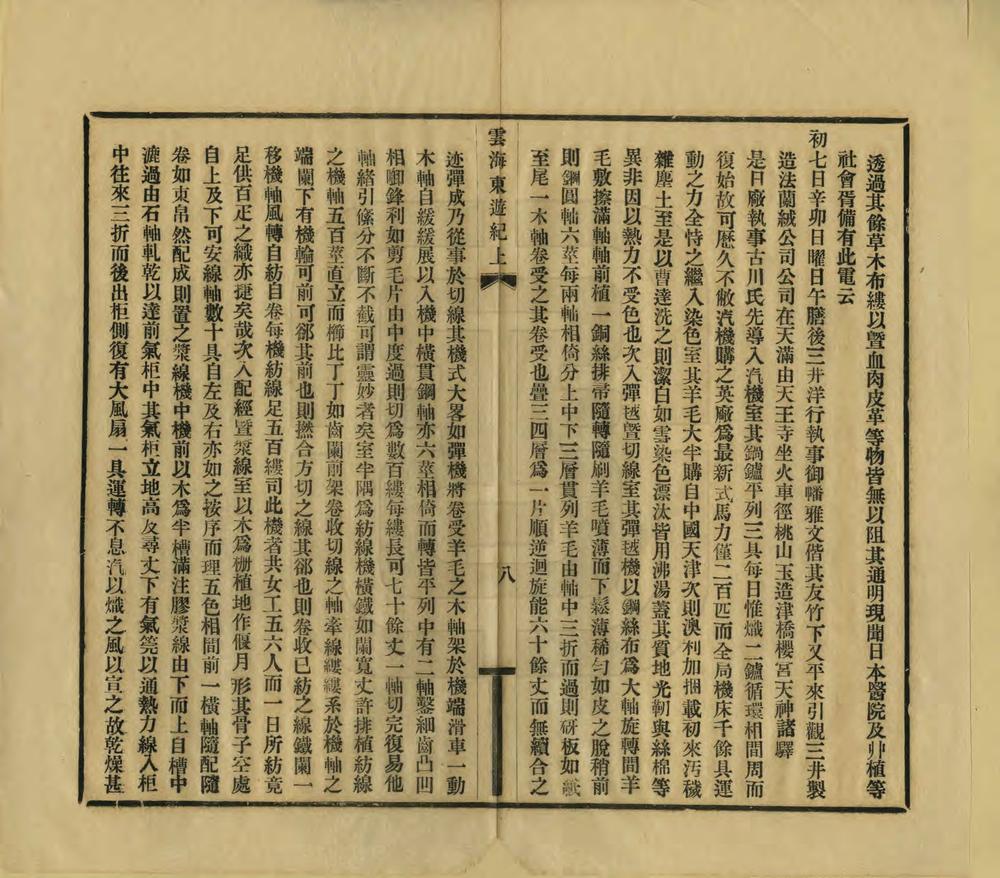 透過其餘草木布縷以暨血肉皮革等物皆無以阻其通明現聞日本醫院及丱植等
社會胥備有此電云
初七日辛卯日曜日午膳後三井洋行執事御幡雅文偕其友竹下又平來引觀三井製
造法蘭絨公司公司在天滿由天王寺坐火車徑桃山玉造津橋櫻宮天神諸驛
是日廠執事古川氏先導入汽機室其鍋鑪平列三具每日惟熾二鑪循環相間周而
復始故可歷久不敝汽機購之英廠爲最新式馬力僅二百匹而全局機床千餘具運
動之力全恃之繼入染色室其羊毛大半購自中國天津次則澳利加捆載初來汚穢
雜塵土至是以曹達洗之則潔白如雪染色漂汰皆用沸湯蓋其質地光韌與絲棉等
異非因以熱力不受色也次入彈毧暨切線室其彈毧機以鋼絲布爲大軸旋轉間羊
毛敷擦滿軸軸前植一銅絲排帚隨轉隨刷羊毛噴薄而下鬆薄稀勻如皮之脫稍前
則鋼圓軸六莖每兩軸相倚分上中下三層貫列羊毛由軸中三折而過則砑板如紙
至尾一木軸卷受之其卷受也疊三四層爲一片順逆迴旋能六十餘丈而無續合之
雲海東遊紀上
八
迹彈成乃從事於切線其機式大畧如彈機將卷受羊毛之木軸架於機端滑車一動
木軸自緩緩展以入機中橫貫鋼軸亦六莖相倚而轉皆平列中有二軸鏨細齒凸凹
相啣鋒利如剪毛片由中度過則切爲數百縷每縷長可七十餘丈一軸切完復易他
軸緒引絛分不斷不截可謂靈妙者矣室半隅爲紡線機機橫鐵如闌寬丈許排植紡線
之機軸五百莖直立而櫛比丁丁如齒闌前架卷收切線之軸牽線縷縷系於機軸之
端闌下有機輪可前可郤其前也則撚合方切之線其郤也則卷收已紡之線鐵闌一
移機軸風轉自紡自卷每機紡線足五百縷司此機者共女工五六人而一日所紡竟
足供百疋之織亦捷矣哉次入配經暨漿線至以木爲栅植地作偃月形其骨子空處
自上及下可安線軸數十具自左及右亦如之按序而理五色相間前一橫軸隨配隨
卷如束帛然配成則置之漿線機中機前以木爲半槽滿注膠漿線由下而上自槽中
漉過由石軸軋乾以達前氣柜中其氣柜立地高及尋丈下有氣筦以通熱力線入柜
中往來三折而後出柜側復有大風扇一具運轉不息汽以熾之風以宣之故乾燥甚